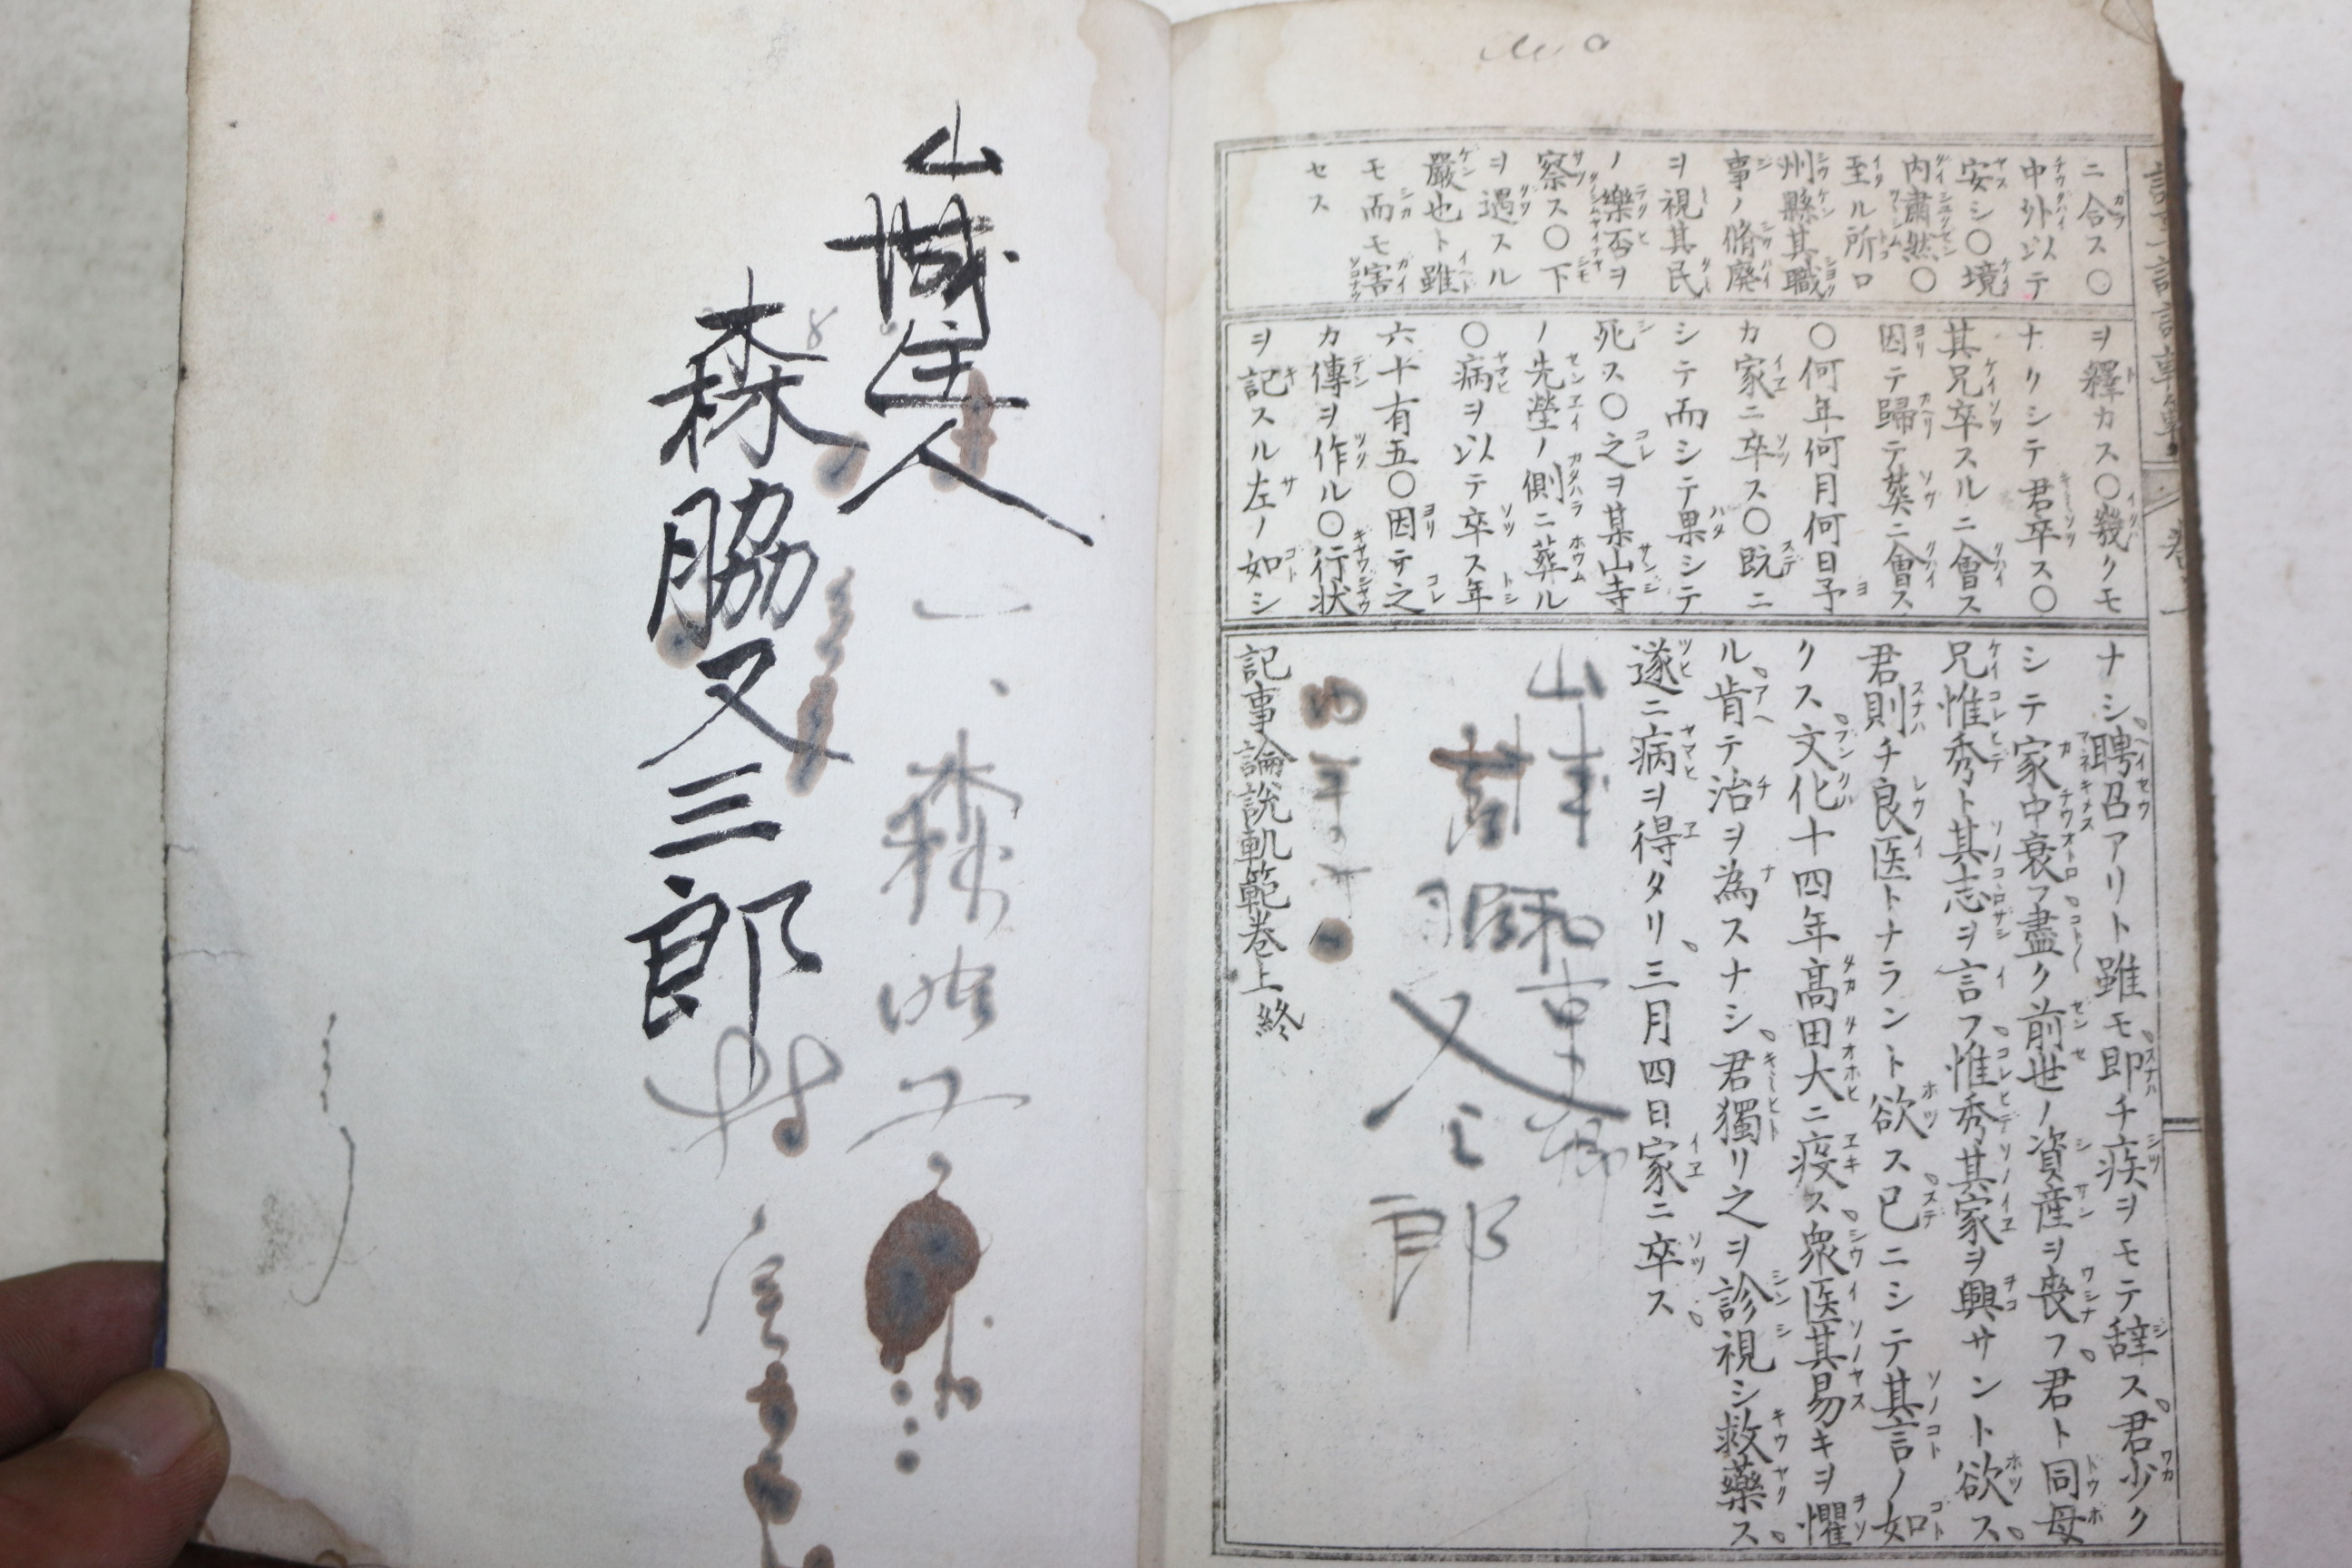 ニ合ス〇
中外以テ
安シ〇境
内肅然〇
至ル所ロ
州縣其職
事ノ脩廃
ヲ視其民
ノ樂否ヲ
察ス〇下
ヲ遇スル
嚴也ト雖
モ而モ害
セス
ヲ釋カス〇幾クモ
ナクシテ君卒ス〇
其兄卒スルニ會ス
因テ歸テ葬ニ會ス
〇何年何月何日予
カ家ニ卒ス〇既ニ
シテ而シテ果シテ
死ス〇之ヲ某山寺
ノ先塋ノ側ニ葬ル
〇病ヲ以テ卒ス年
六十有五〇因テ之
カ傳ヲ作ル〇行状
ヲ記スル左ノ如シ
ナシ。聘召アリト雖モ。即チ疾ヲモテ辞ス。君少ク
シテ家中衰フ。盡ク前世ノ資産ヲ喪フ。君ト同母
兄惟秀ト其志ヲ言フ。惟秀其家ヲ興サント欲ス。
君則チ良医トナラント欲ス。已ニシテ其言ノ如
クス。文化十四年髙田大ニ疫ス。衆医其易キヲ懼
ル。肯テ治ヲ為スナシ。君獨リ之ヲ診視シ救藥ス。
遂ニ病ヲ得タリ。三月四日家ニ卒ス。
山
又
郎
記事論説軌範巻上終
山城
人
森脇又三郎
森